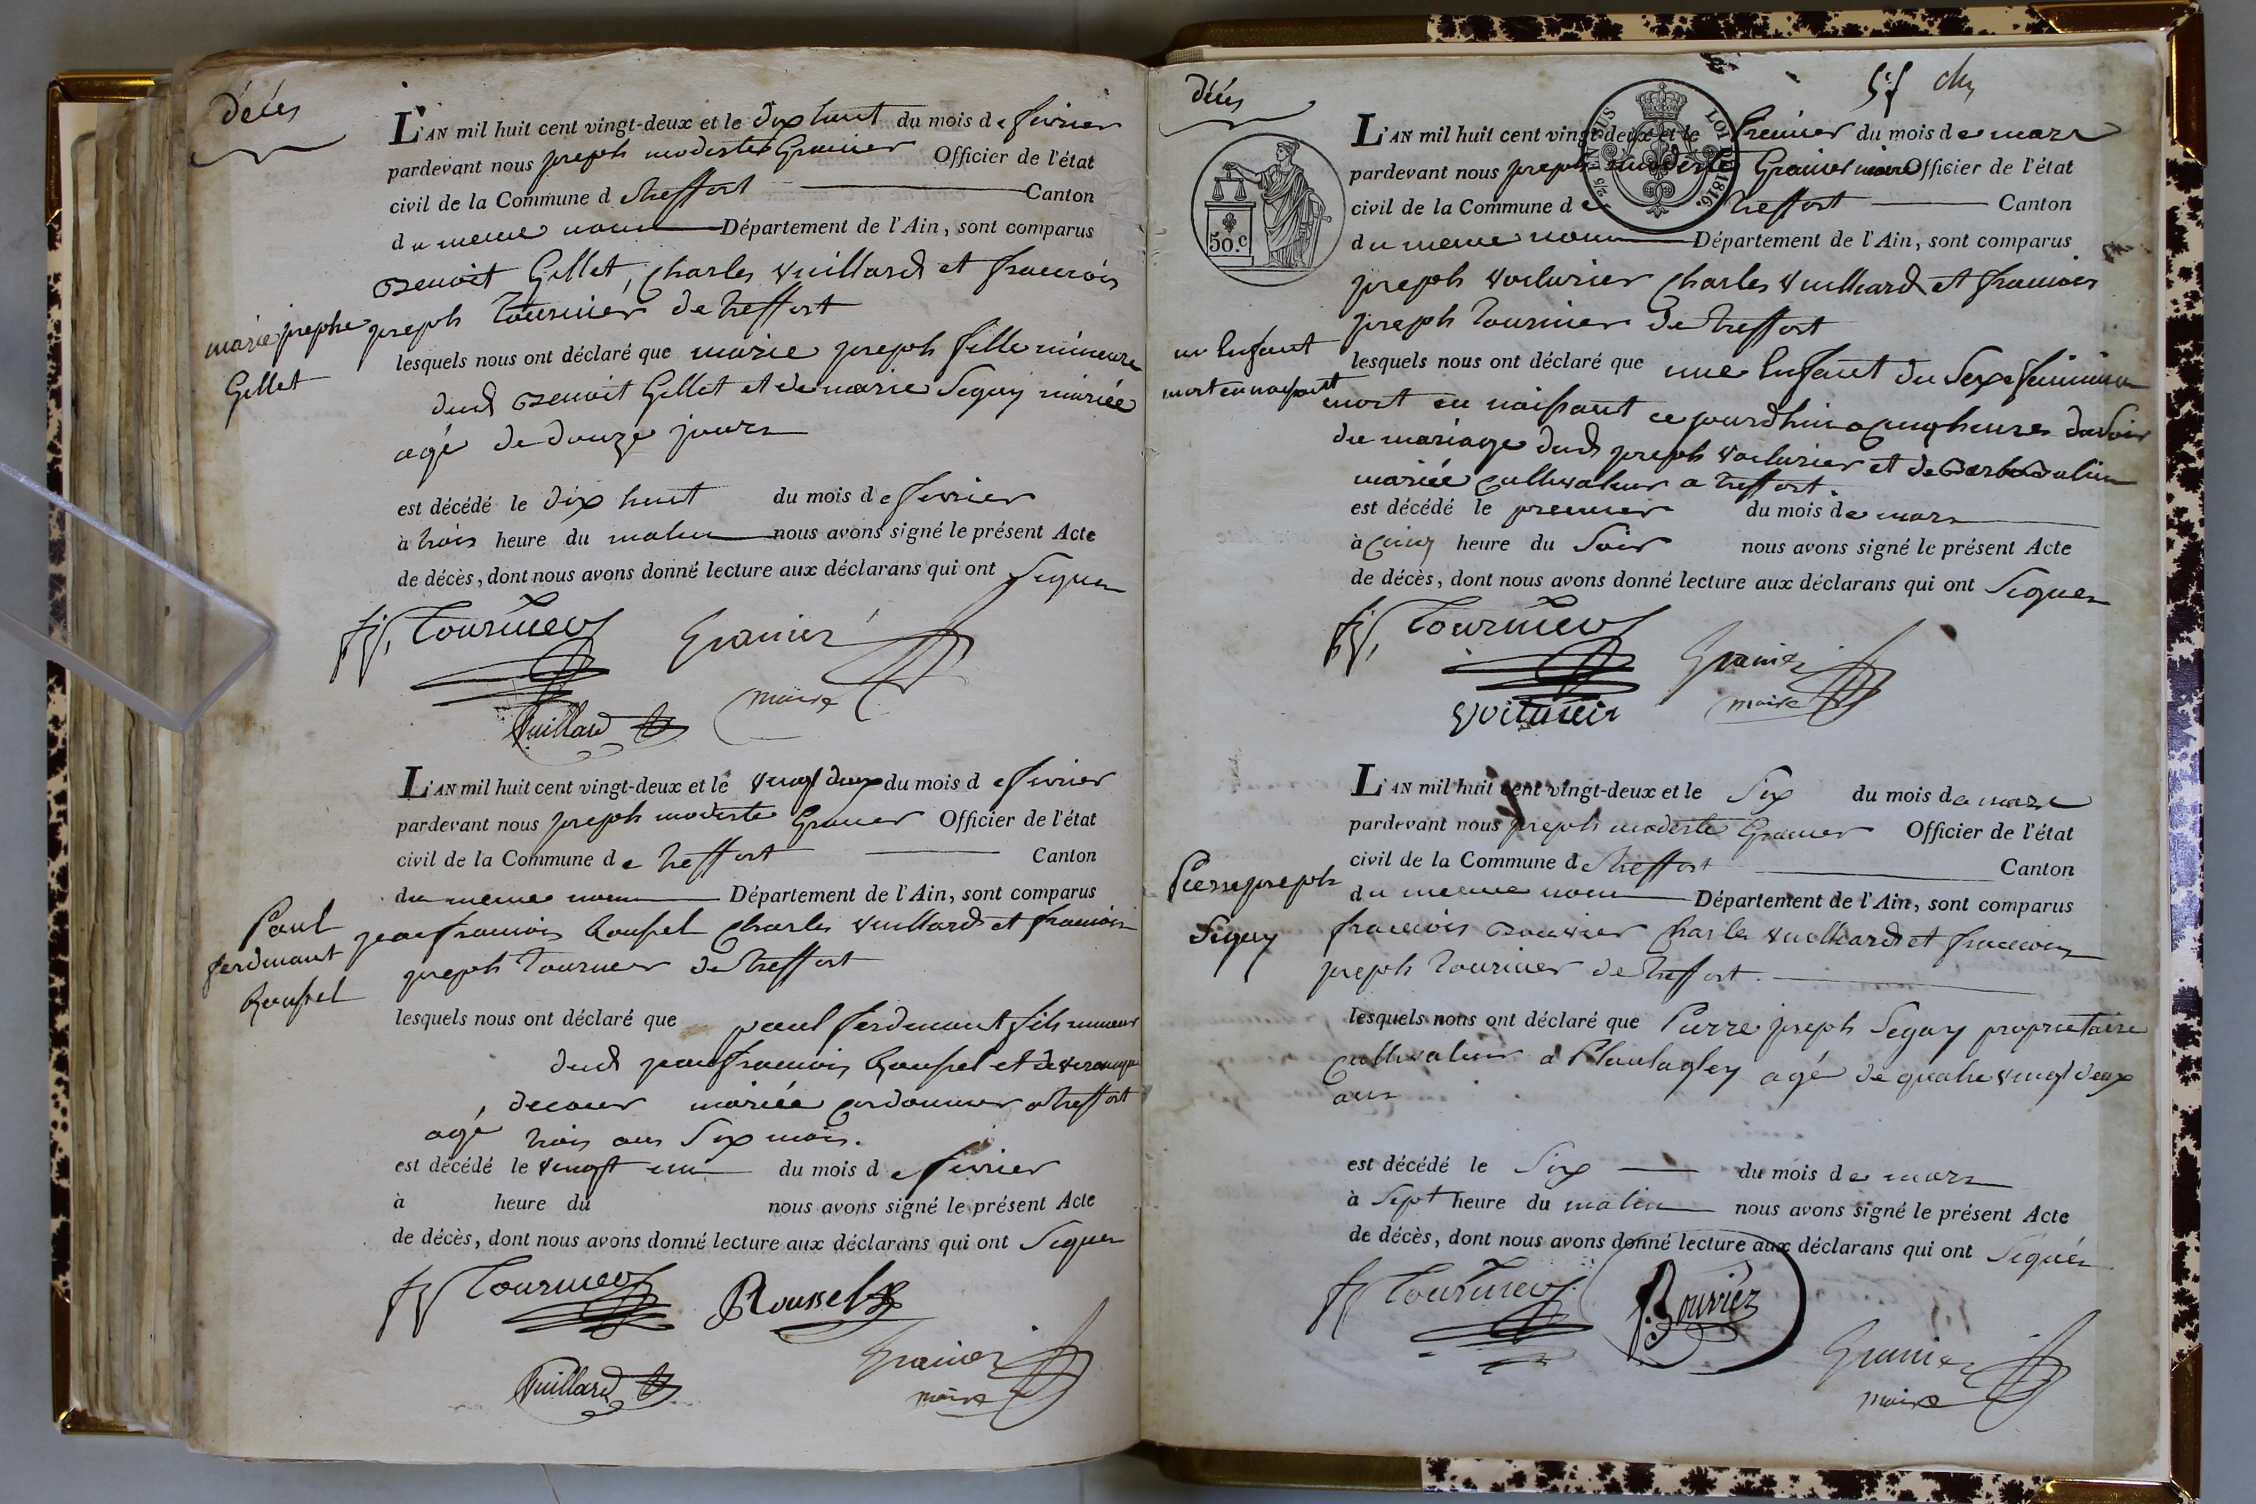 décès
L'AN mil huit cent vingt-deux et le dix huit du mois de fevrier
pardevant nous joseph modeste Granier Officier de l'état
civil de la Commune de treffort Canton
du meme nom Département de l'Ain, sont comparus
Benoit Gillet, charles vuillard et francois
joseph tournier de treffort
marie josephe
Gillet
lesquels nous ont déclaré que marie joseph fille mineure
dud Benoit Gillet et de marie Seguy mariée
agé de douze jours
est décédé le dix huit du mois de fevrier
à trois heure du matin nous avons signé le présent Acte
de décès, dont nous avons donné lecture aux déclarans qui ont Signer
fj Tournier Granier
maire
Vuillard
L'AN mil huit cent vingt-deux et le vingt deux du mois de fevrier
pardevant nous joseph modeste Granier Officier de l'état
civil de la Commune de treffort Canton
du meme nom Département de l'Ain, sont comparus
Paul
ferdinant
Roussel
jean francois Roussel charles vuillard et francois
joseph tournier de treffort
lesquels nous ont déclaré que paul ferdinant fils mineur
dud jean francois Roussel et de
mariée cordonnier a treffort
agé trois ans Six mois.
est décédé le vingt un du mois de fevrier
à heure du nous avons signé le présent Acte
de décès, dont nous avons donné lecture aux déclarans qui ont Signer
fj Tournier Roussel
Granier
Vuillard maire
décès
50.c
EN SUS
LOI DE 1816.
L'AN mil huit cent vingt-deux et le Premier du mois de mars
pardevant nous joseph modeste Granier maire Officier de l'état
civil de la Commune de treffort Canton
du meme nom Département de l'Ain, sont comparus
joseph voiturier charles vuillard et francois
joseph tournier de treffort
un Enfant
mort en naissant
lesquels nous ont déclaré que une Enfant du Sexe feminin
mort en naissant ce jourdhui a cinq heures du Soir
du mariage dud joseph voiturier et de
mariée cultivateur a treffort.
est décédé le premier du mois de mars
à cinq heure du Soir nous avons signé le présent Acte
de décès, dont nous avons donné lecture aux déclarans qui ont Signer
fj Tournier Granier
maire
voiturier
L'AN mil huit cent vingt-deux et le Six du mois de mars
pardevant nous joseph modeste Granier Officier de l'état
civil de la Commune de treffort Canton
du meme nom Département de l'Ain, sont comparus
Pierre joseph
Seguy
francois Bouvier charles vuillard et francois
joseph tournier de treffort.
lesquels nous ont déclaré que Pierre joseph Seguy proprietaire
cultivateur a Plantagley agé de quatre vingt deux
ans
est décédé le Six du mois de mars
à Sept heure du matin nous avons signé le présent Acte
de décès, dont nous avons donné lecture aux déclarans qui ont Signer
fj Tournier Bouvier
Granier
maire